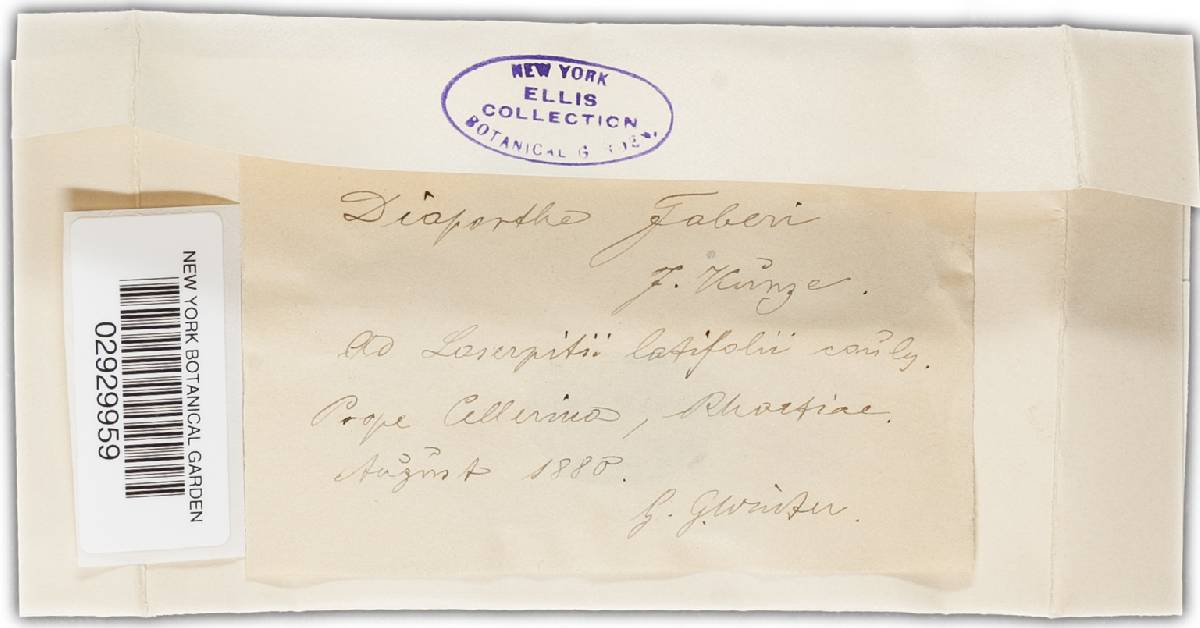 NEW YORK
ELLIS
COLLECTION
BOTANICAL GARDEN.
Diaporthe Faberi
J. Kunze.
Ad Laserpitii latifolii caul.
Prope Cellerina, Rhaetiae.
August 1880.
G. Winter.
NEW YORK BOTANICAL GARDEN
02929959